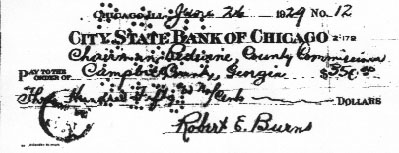 Chicago, Ill. June 26 1929 No. 12
City State Bank of Chicago 2-178
Chairman County Commissioners
Pay to the order of Campbell County, Georgia $350.00
Three Hundred Fifty no/cents Dollars
Robert E. Burns